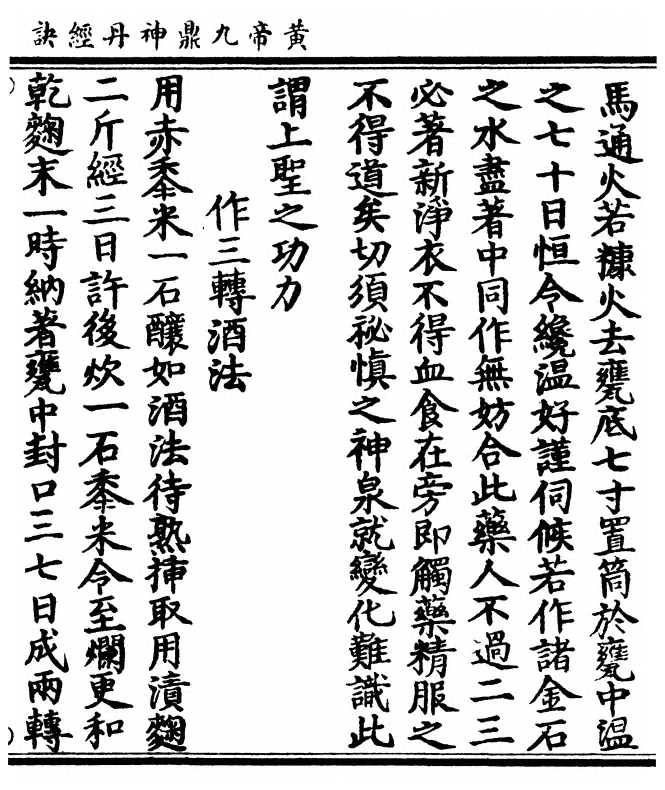 黃帝九鼎神丹經訣
馬通火若糠火去甕底七寸置筒於甕中溫
之七十日恒令纔溫好謹伺候若作諸金石
之水盡著中同作無妨合此藥人不過二三
必著新淨衣不得血食在旁即觸藥精服之
不得道矣切須祕慎之神泉就變化難識此
謂上聖之功力
作三轉酒法
用赤黍米一石釀如酒法待熟揷取用漬麴
二斤經三日許後炊一石黍米令至爛更和
乾麴末一時納著甕中封口三七日成兩轉